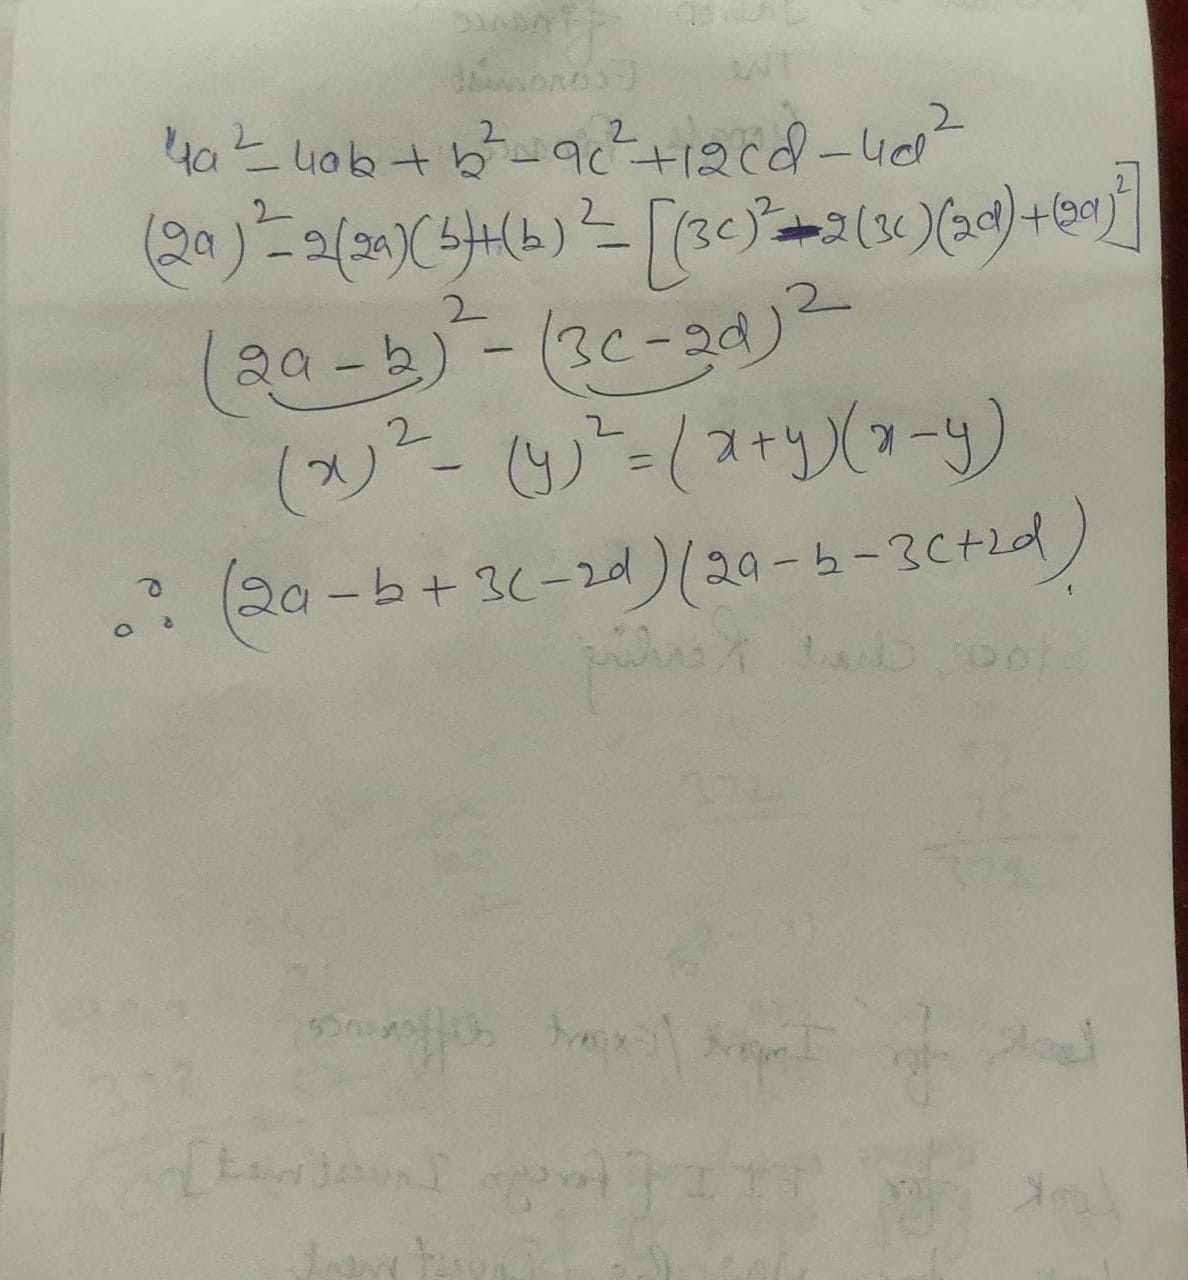 4a² - 4ab + b² - 9c² + 12cd - 4d²
(2a)² - 2(2a)(b) + (b)² - [(3c)² - 2(3c)(2d) + (2d)²]
(2a - b)² - (3c - 2d)²
(x)² - (y)² = (x+y)(x-y)
∴ (2a - b + 3c - 2d)(2a - b - 3c + 2d).